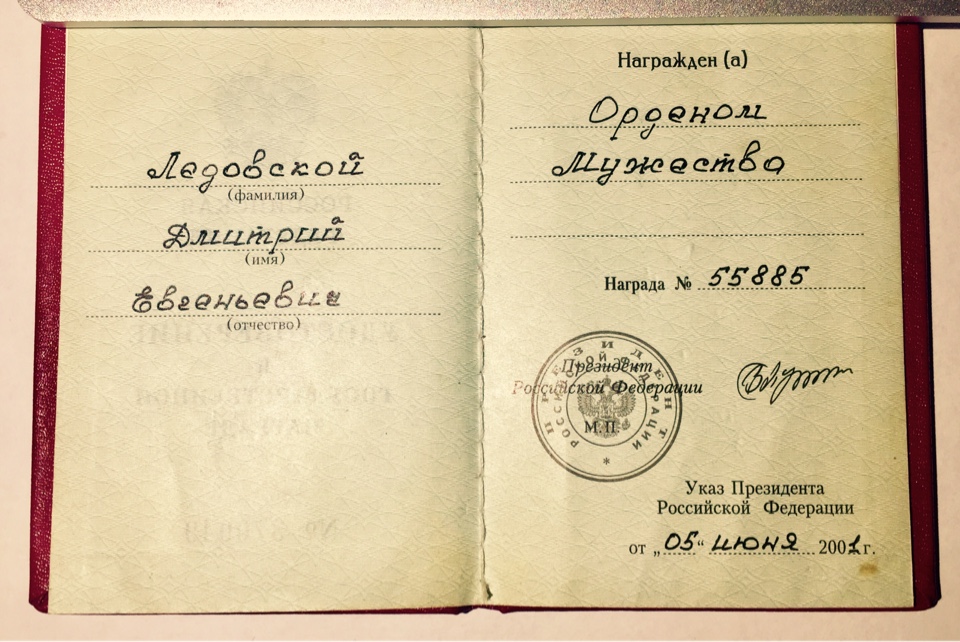 Ледовской
(фамилия)
Дмитрий
(имя)
Евгеньевич
(отчество)
Награжден (а)
Орденом
Мужества
Награда № 55885
Президент
Российской Федерации
М.П.
ПРЕЗИДЕНТ
РОССИЙСКОЙ ФЕДЕРАЦИИ
*
Указ Президента
Российской Федерации
от „05“ июня 2001 г.